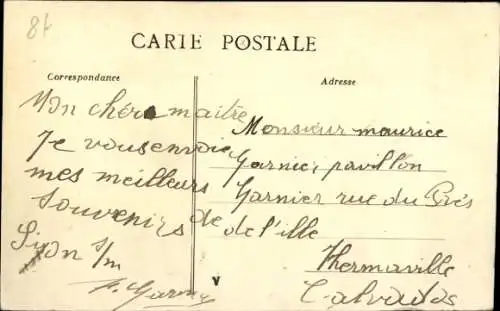 8f
CARIE POSTALE
Correspondance
Mon chér maitre
Je vous envoie
mes meilleurs
souvenirs de
Lyon s/m
Adresse
Monsieur maurice
Garnier pavillon
Garnier rue du Prés
de l'ille
Thermaville
Calvados
V